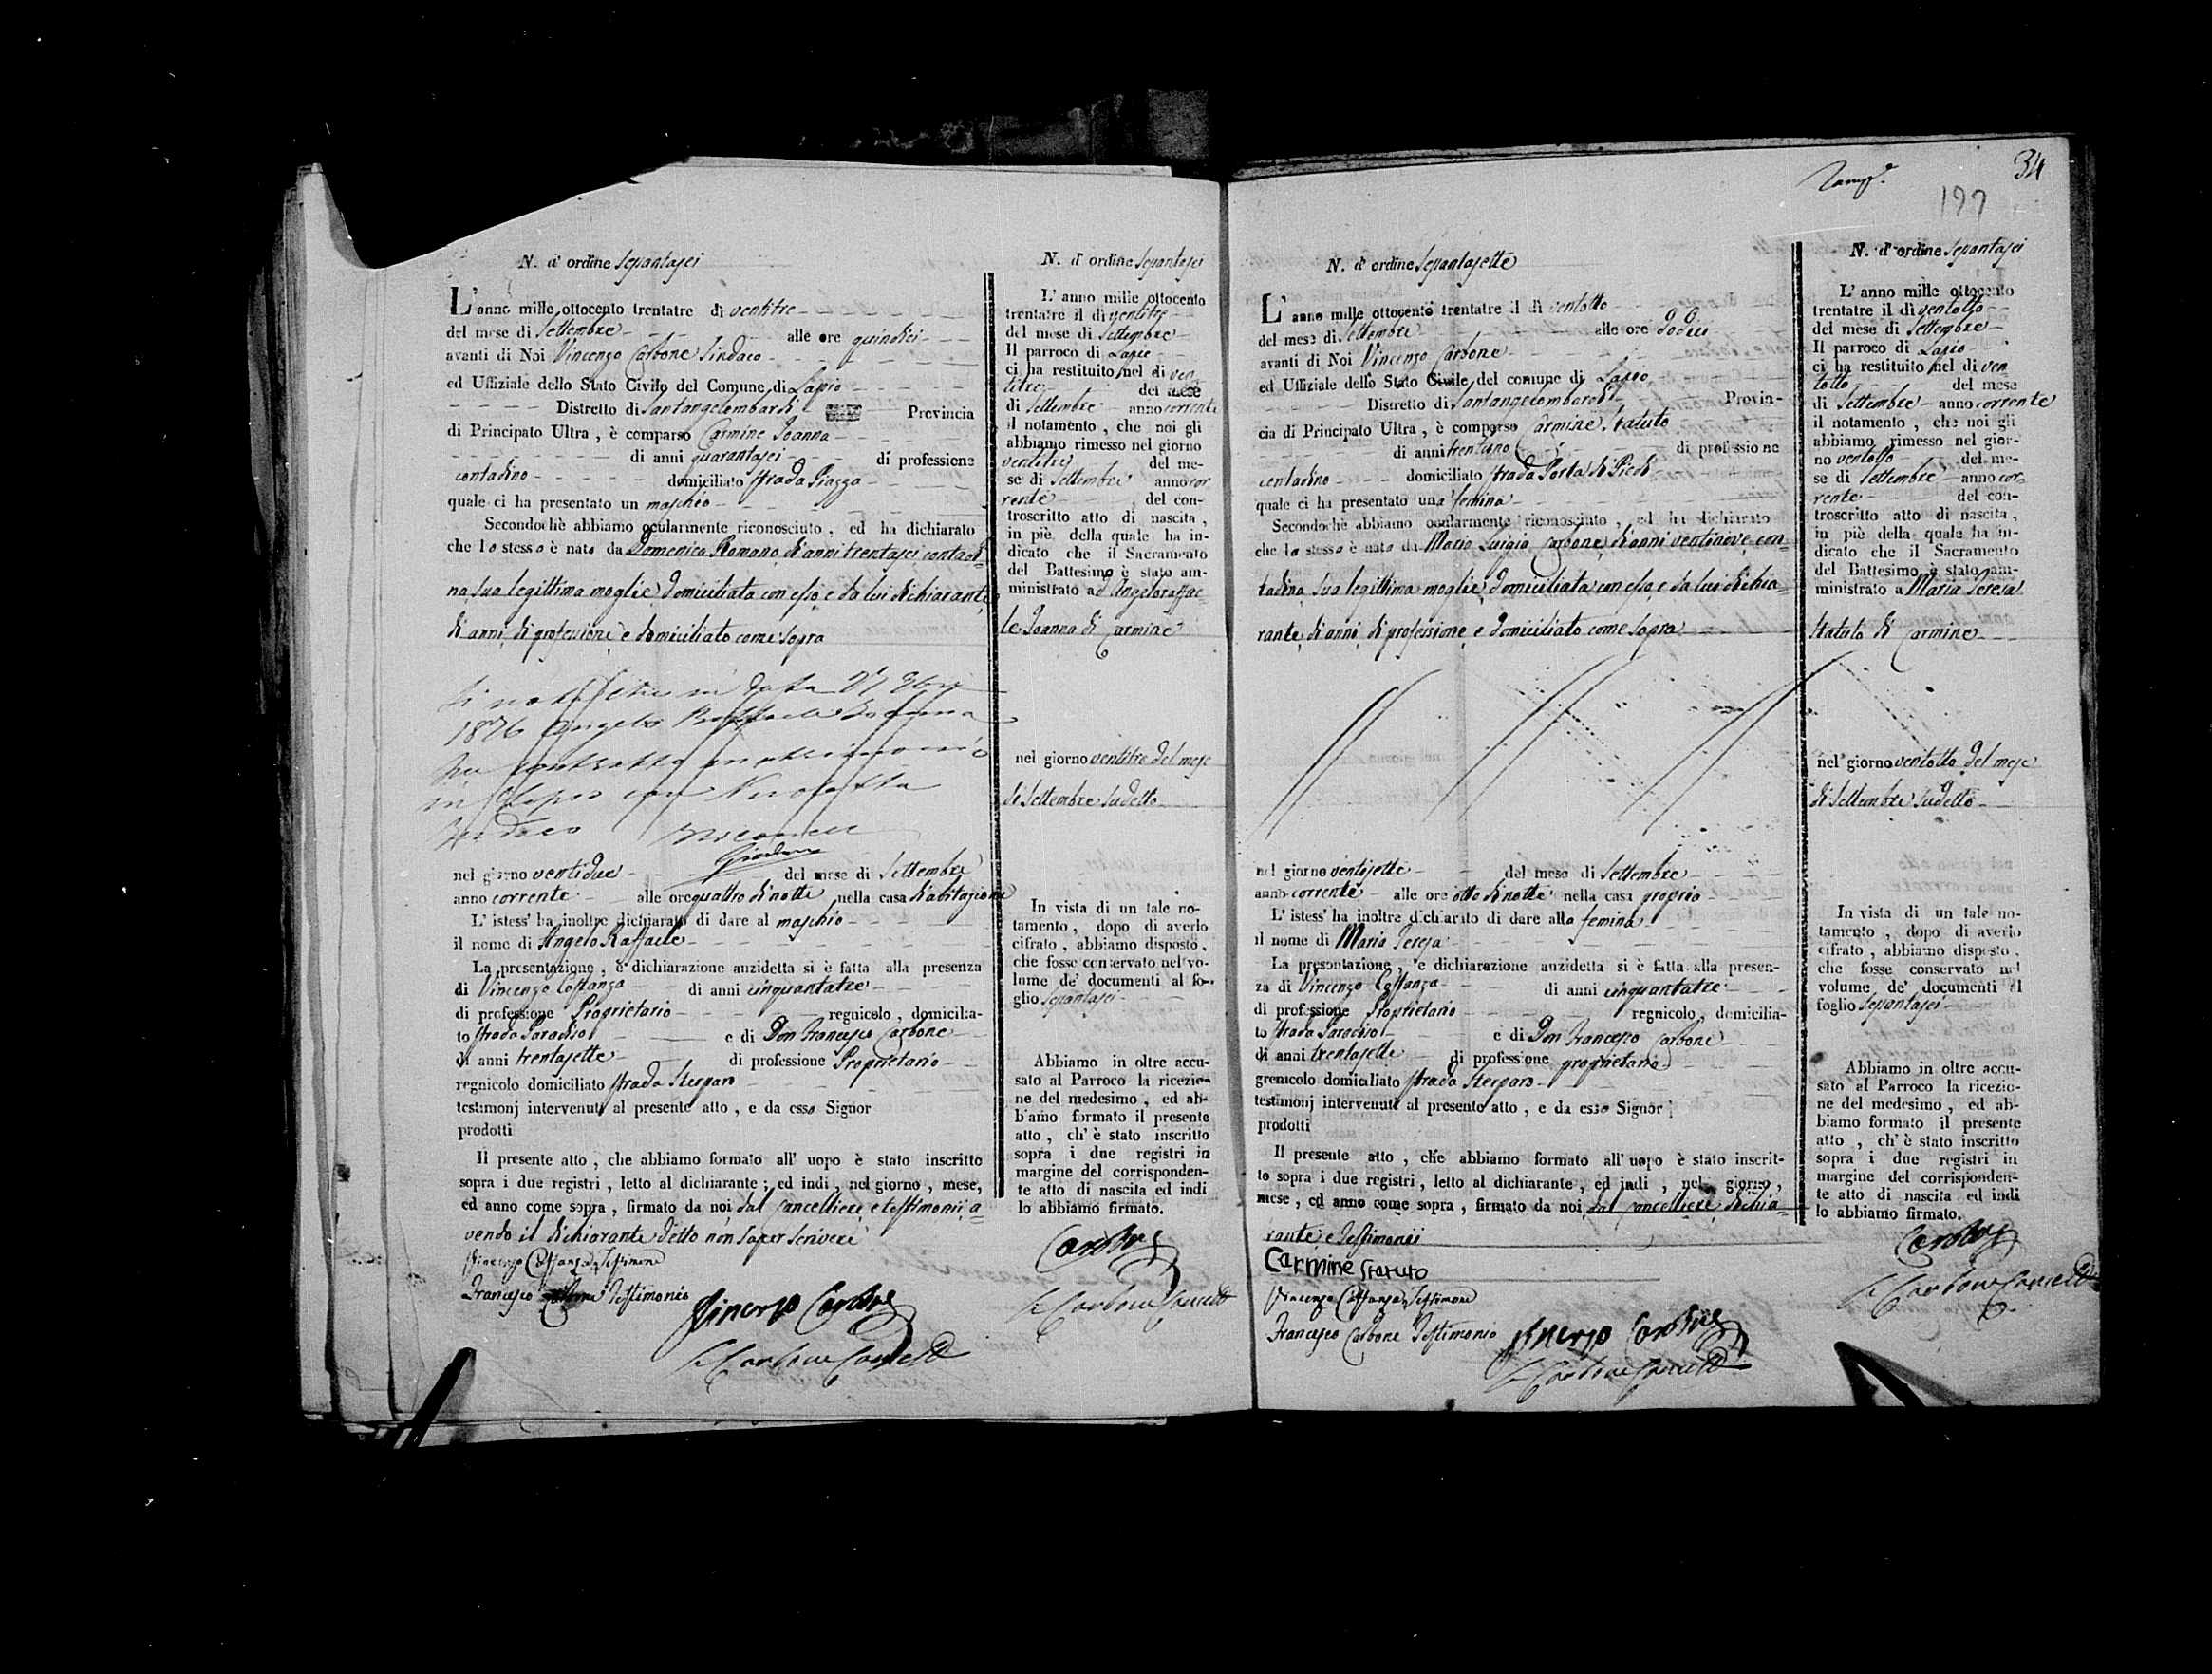 34
199
N. d' ordine Sessantasei
L' anno mille ottocento trentatre di ventitre
del mese di Settembre alle ore quindici
avanti di Noi Vincenzo Carbone Sindaco
ed Uffiziale dello Stato Civile del Comune di Lapio
Distretto di Santangelombardi Provincia
di Principato Ultra , è comparso Carmine Joanna
di anni quarantasei di professione
contadino domiciliato strada Piazza
quale ci ha presentato un maschio
Secondochè abbiamo ocularmente riconosciuto , ed ha dichiarato
che lo stesso è nato da Domenica Romano di anni trentasei contadi=
na sua legittima moglie domiciliata con esso e da lui dichiarante
di anni, di professione e domiciliato come sopra
Si nota che in data 21
1876 Angelo Raffaele Joanna
ha contratto matrimonio
in Lapio con Nicoletta
nel giorno ventidue del mese di Settembre
anno corrente alle ore quattro di notte nella casa d'abitazione
L' istess' ha inoltre dichiarato di dare al maschio
il nome di Angelo Raffaele
La presentazione , e dichiarazione anzidetta si è fatta alla presenza
di Vincenzo Costanza di anni cinquantatre
di professione Proprietario regnicolo , domicilia-
to strada Paradiso e di Don Francesco Carbone
di anni trentasette di professione Proprietario
regnicolo domiciliato strada Sterparo
testimonj intervenuti al presente atto , e da esso Signor
prodotti
Il presente atto , che abbiamo formato all' uopo è stato inscritto
sopra i due registri , letto al dichiarante ; ed indi , nel giorno , mese,
ed anno come sopra , firmato da noi dal Cancelliere e testimonii a=
vendo il dichiarante detto non saper scrivere
Vincenzo Costanza Testimone
Francesco Carbone Testimonio
Vincenzo Carbone
Carbone Cancell
N. d' ordine Sessantasei
L' anno mille ottocento
trentatre il dì ventitre
del mese di Settembre
Il parroco di Lapio
ci ha restituito nel dì ven
titre del mese
di Settembre anno corrente
il notamento , che noi gli
abbiamo rimesso nel giorno
ventitre del me-
se di Settembre anno cor
rente del con-
troscritto atto di nascita ,
in piè della quale ha in-
dicato che il Sacramento
del Battesimo è stato am-
ministrato ad Angeloraffae=
le Joanna di Carmine
nel giorno ventitre del mese
di Settembre sudetto
In vista di un tale no-
tamento , dopo di averlo
cifrato , abbiamo disposto ,
che fosse conservato nel vo-
lume de' documenti al fo-
glio Sessantasei
Abbiamo in oltre accu-
sato al Parroco la ricezio-
ne del medesimo , ed ab-
biamo formato il presente
atto , ch' è stato inscritto
sopra i due registri in
margine del corrisponden-
te atto di nascita ed indi
lo abbiamo firmato.
Carbone
Carbone Cancell
N. d' ordine Sessantasette
L' anno mille ottocento trentatre il dì ventotto
del mese di Settembre alle ore dodici
avanti di Noi Vincenzo Carbone
ed Uffiziale dello Stato Civile del comune di Lapio
Distretto di Santangelombardi Provin-
cia di Principato Ultra , è comparso Carmine Statuto
di anni trentuno di professione
contadino domiciliato strada Porta di Piedi
quale ci ha presentato una femina
Secondochè abbiamo ocularmente riconosciuto , ed ha dichiarato
che la stessa è nata da Maria Luigia Carbone di anni ventinove con=
tadina sua legittima moglie domiciliata con esso e da lui dichia=
rante di anni, di professione e domiciliato come sopra
nel giorno ventisette del mese di Settembre
anno corrente alle ore otto di notte nella casa propria
L' istess' ha inoltre dichiarato di dare alla femina
il nome di Maria Teresa
La presentazione , e dichiarazione anzidetta si è fatta alla presen-
za di Vincenzo Costanza di anni cinquantatre
di professione Proprietario regnicolo , domicilia-
to strada Paradiso e di Don Francesco Carbone
di anni trentasette di professione proprietario
grenicolo domiciliato strada Sterparo
testimonj intervenuti al presente atto , e da esso Signor
prodotti
Il presente atto , che abbiamo formato all' uopo è stato inscrit-
to sopra i due registri , letto al dichiarante , ed indi , nel giorno ,
mese , ed anno come sopra , firmato da noi dal Cancelliere dichia=
rante e testimonii
Carmine Statuto
Vincenzo Costanza Testimone
Francesco Carbone Testimonio
Vincenzo Carbone
Carbone Cancell
N. d' ordine Sessantasei
L' anno mille ottocento
trentatre il dì ventotto
del mese di Settembre
Il parroco di Lapio
ci ha restituito nel dì ven
totto del mese
di Settembre anno corrente
il notamento , che noi gli
abbiamo rimesso nel gior-
no ventotto del me-
se di Settembre anno cor=
rente del con-
troscritto atto di nascita ,
in piè della quale ha in-
dicato che il Sacramento
del Battesimo è stato am-
ministrato a Maria Teresa
Statuto di Carmine
nel giorno ventotto del mese
di Settembre sudetto
In vista di un tale no-
tamento , dopo di averlo
cifrato , abbiamo disposto ,
che fosse conservato nel
volume de' documenti al
foglio Sessantasei
Abbiamo in oltre accu-
sato al Parroco la ricezio-
ne del medesimo , ed ab-
biamo formato il presente
atto , ch' è stato inscritto
sopra i due registri in
margine del corrisponden-
te atto di nascita ed indi
lo abbiamo firmato.
Carbone
Carbone Cancell